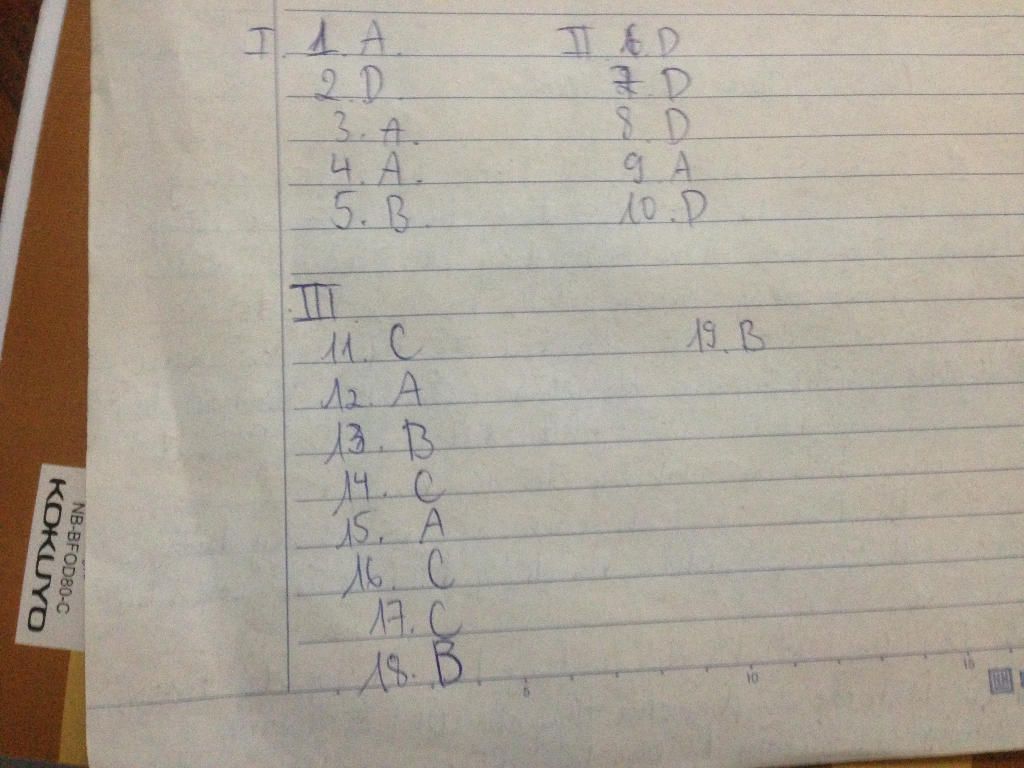 I 1. A. II 6 D
2. D 7. D
3. A. 8. D
4. A. 9 A
5. B. 10. D
III
11. C 19. B
12. A
13. B
14. C
15. A
16. C
17. C
18. B
KOKUYO
NB-BFOD80-C
5 10 15